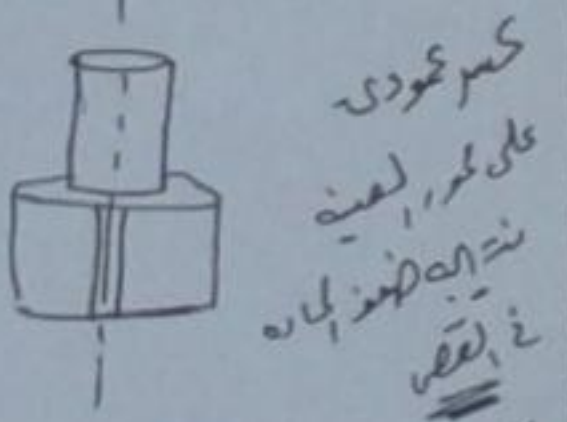 كسر عمودي
على محور العينة
نتيجة ضعف المادة
في القص